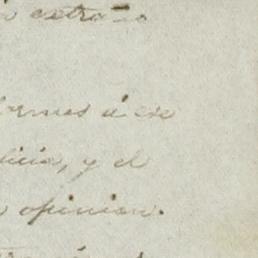 extraño
formes á ese
licia, y el
opinion.